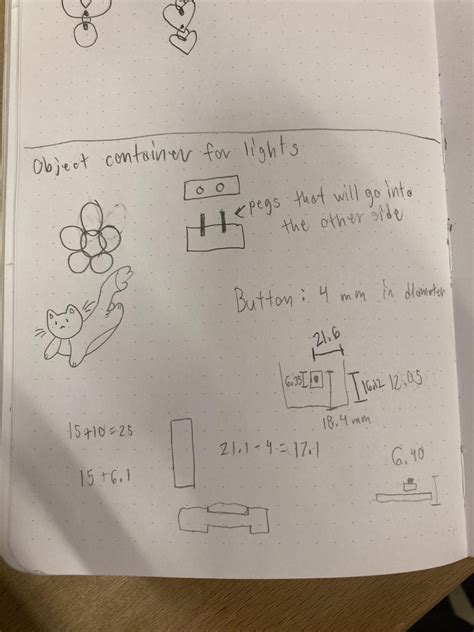 Object container for lights
pegs that will go into
the other side
Button: 4 mm in diameter
21.6
6.35
16.12 12.05
18.4 mm
15+10=25
21.1-4=17.1
6.40
15+6.1